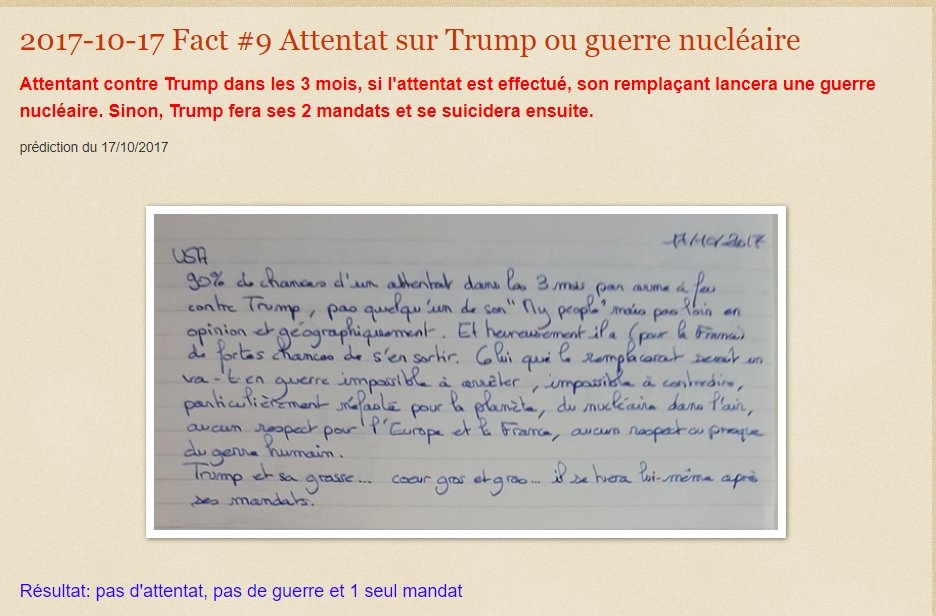 2017-10-17 Fact #9 Attentat sur Trump ou guerre nucléaire
Attentant contre Trump dans les 3 mois, si l'attentat est effectué, son remplaçant lancera une guerre
nucléaire. Sinon, Trump fera ses 2 mandats et se suicidera ensuite.
prédiction du 17/10/2017
17/10/2017
USA
90% de chances d'un attentat dans les 3 mois par arme à feu
contre Trump, pas quelqu'un de son "My people" mais pas loin en
opinion et géographiquement. Et heureusement il a (pour la France)
de fortes chances de s'en sortir. Celui qui le remplacerait serait un
va-t-en guerre impossible à arrêter, impossible à contredire,
particulièrement néfaste pour la planète, du nucléaire dans l'air,
aucun respect pour l'Europe et la France, aucun respect ou presque
du genre humain.
Trump et sa graisse... coeur gros et gras... il se tuera lui-même après
ses mandats.
Résultat: pas d'attentat, pas de guerre et 1 seul mandat